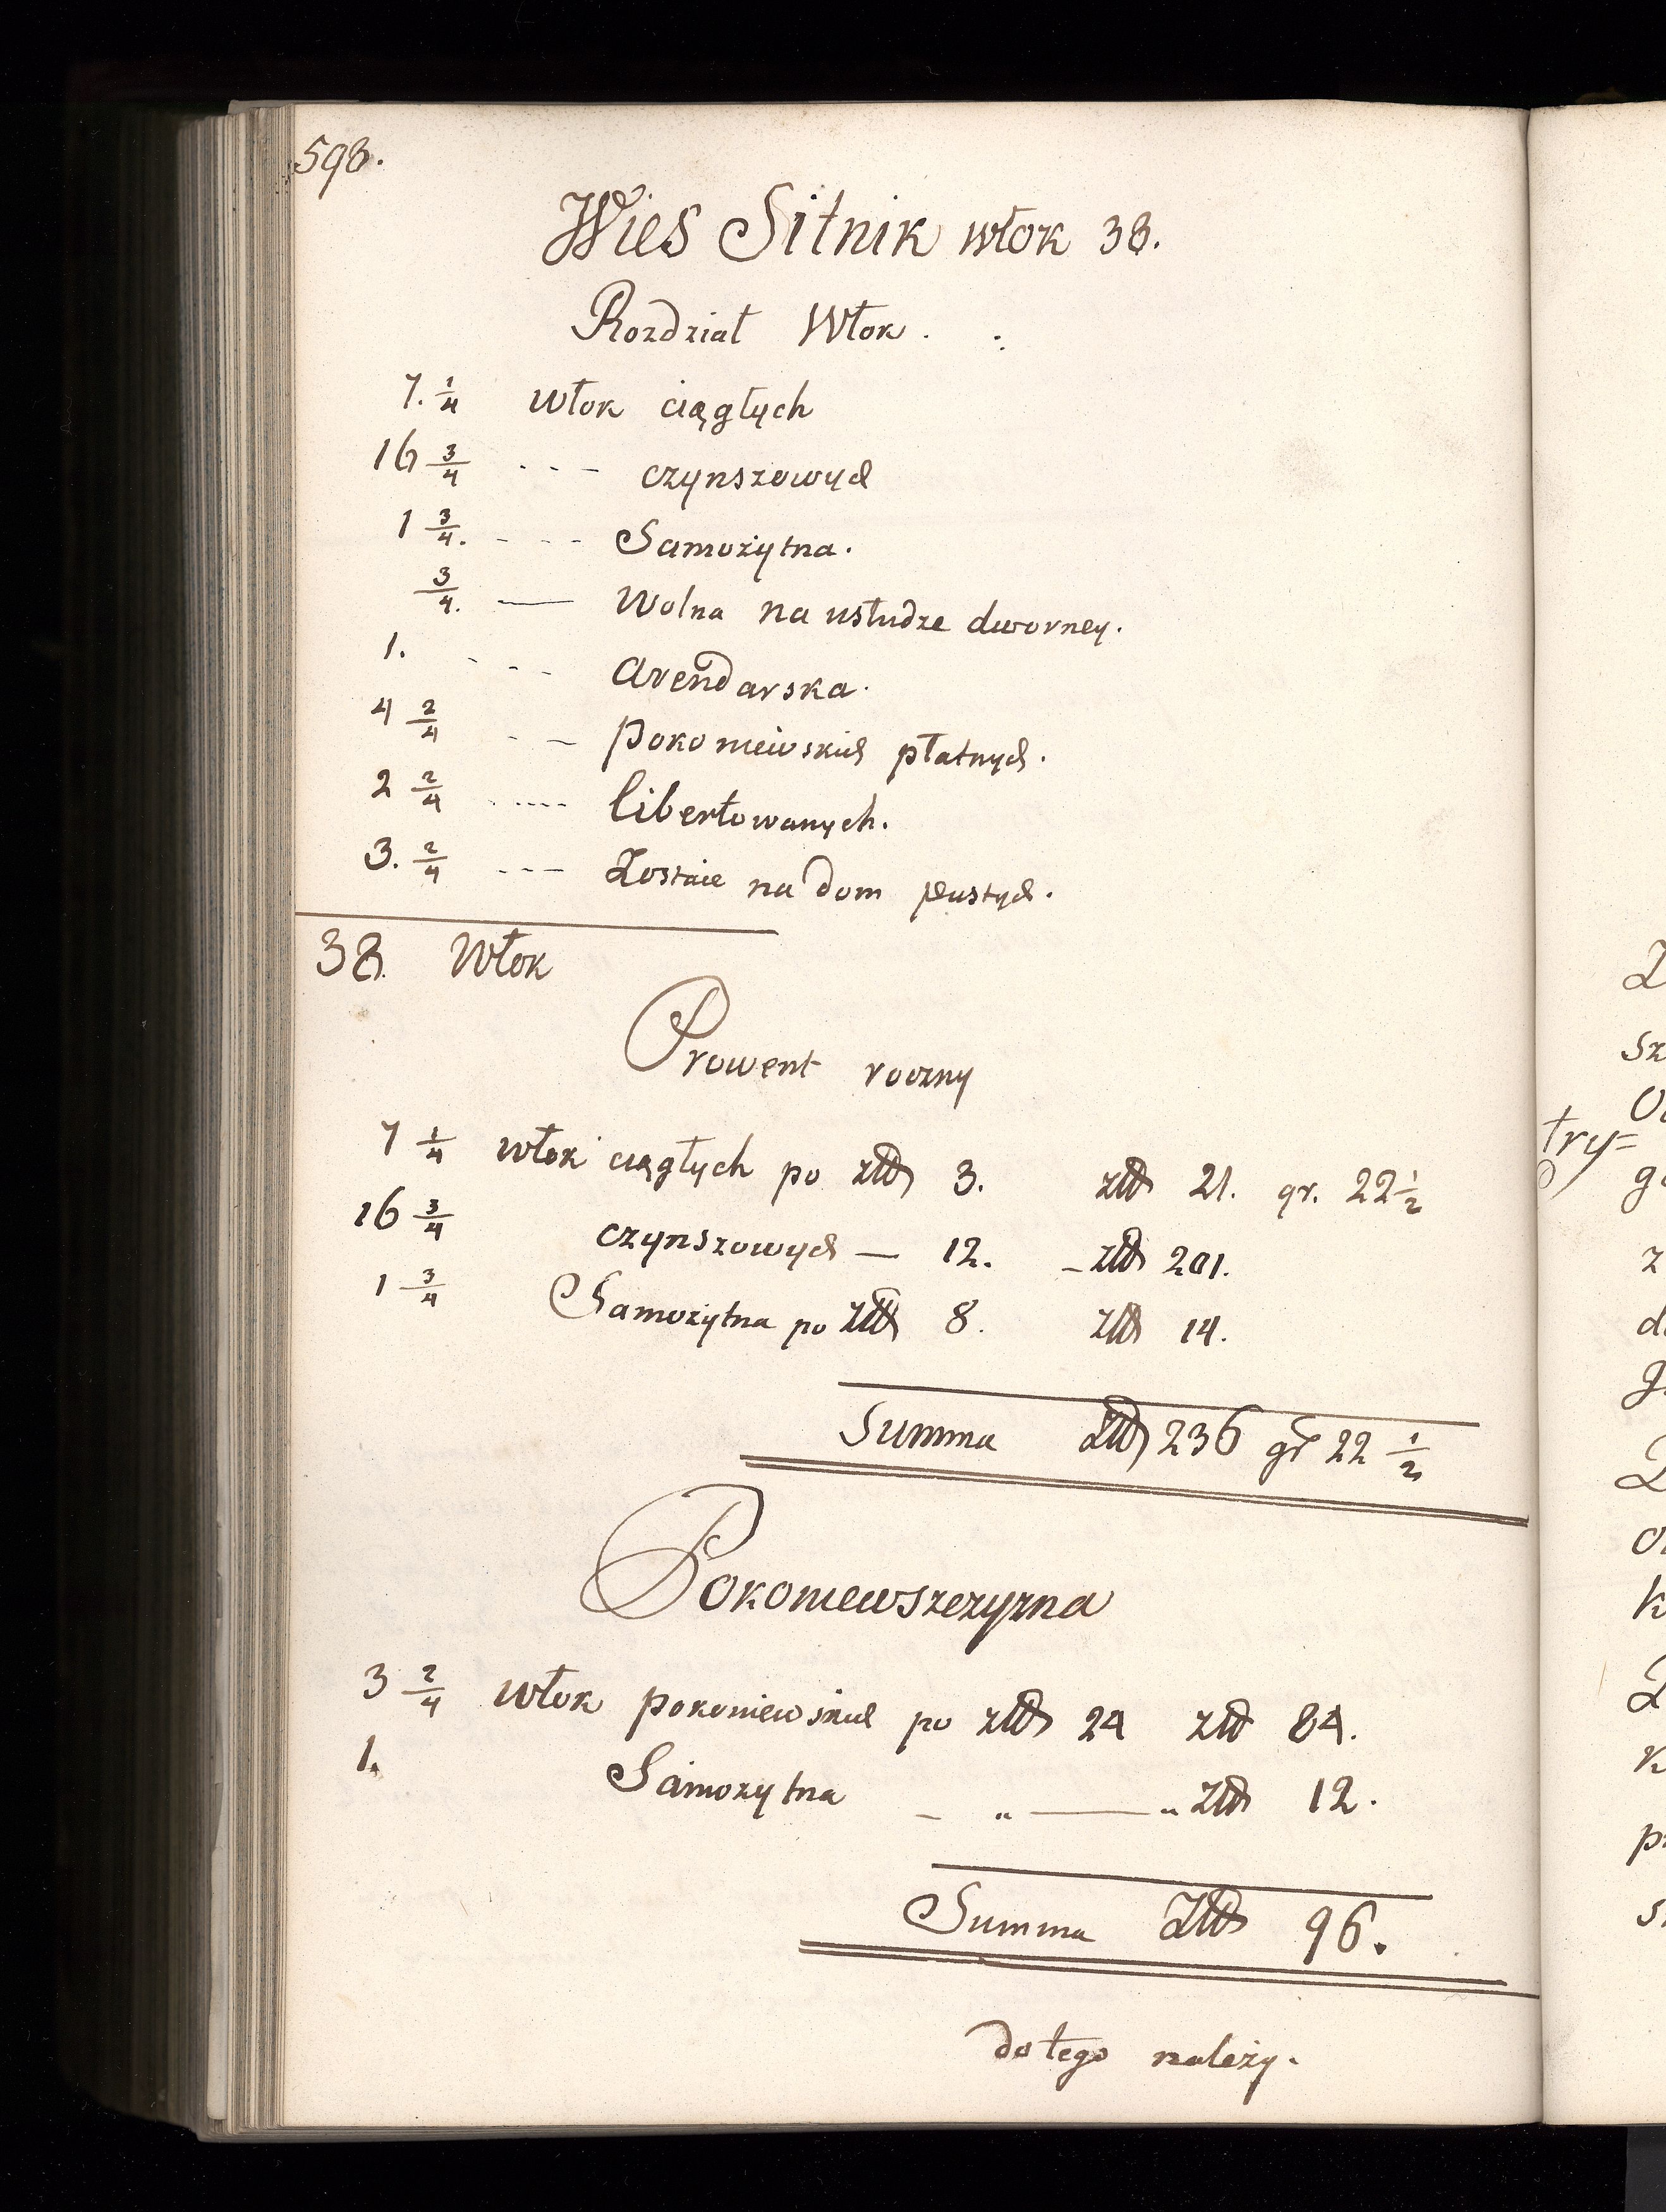 598.
Wies Sitnik włok 38.
Rozdział Włok.
7. 1/4 włok ciągłych
16 3/4 - - - czynszowych
1 3/4. - - - Samożytna.
3/4. — Wolna na usłudze dworney.
1. - - - arendarska.
4 2/4 - - pokoniewskich płatnych.
2 2/4 - - - - libertowanych.
3. 2/4 - - - Zostaie na dom pustych.
38. Włok
Prowent roczny
7 1/4 włok ciągłych po złł 3. złł 21. gr. 22 1/2
16 3/4 czynszowych — 12. - złł 201.
1 3/4 Samożytna po złł 8. złł 14.
Summa złł 236 gr 22 1/2
Pokoniewszczyzna
3 2/4 włok pokoniewskich po złł 24 złł 84.
1. Samożytna - „ — „ złł 12.
Summa złł 96.
do tego należy.
try=